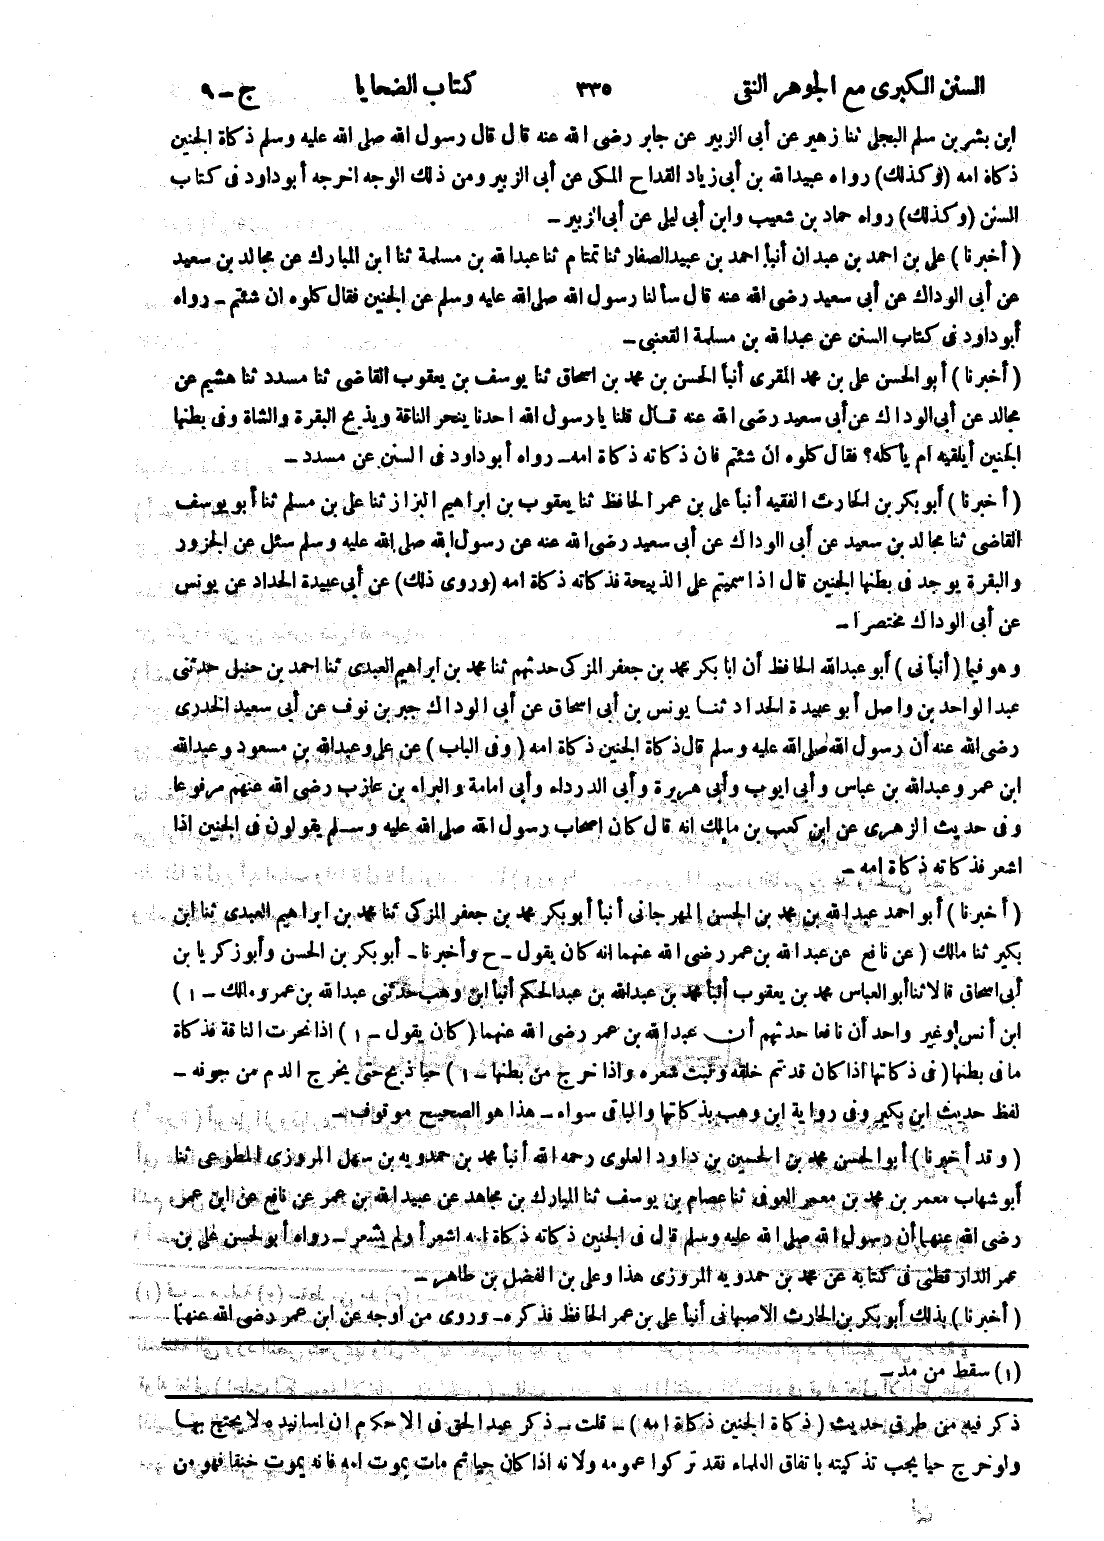 السنن الكبرى مع الجوهر النقى ٣٣٥ كتاب الضحايا ج ـ ٩
ابن بشر بن سلم البجلى ثنا زهير عن أبى الزبير عن جابر رضى الله عنه قال قال رسول الله صلى الله عليه وسلم ذكاة الجنين
ذكاة امه (وكذلك) رواه عبيدالله بن أبى زياد القداح المكى عن أبى الزبير ومن ذلك الوجه اخرجه أبو داود فى كتاب
السنن (وكذلك) رواه حماد بن شعيب وابن أبى ليلى عن أبى الزبير ـ
(أخبرنا) على بن احمد بن عبدان أنبأ احمد بن عبيد الصفار ثنا تمتام ثنا عبدالله بن مسلمة ثنا ابن المبارك عن مجالد بن سعيد
عن أبى الوداك عن أبى سعيد رضى الله عنه قال سألنا رسول الله صلى الله عليه وسلم عن الجنين فقال كلوه ان شئتم ـ رواه
أبو داود فى كتاب السنن عن عبدالله بن مسلمة القعنبى ـ
(أخبرنا) أبو الحسن على بن محمد المقرى أنبأ الحسن بن محمد بن اسحاق ثنا يوسف بن يعقوب القاضى ثنا مسدد ثنا هشيم عن
مجالد عن أبى الوداك عن أبى سعيد رضى الله عنه قال قلنا يا رسول الله احدنا ينحر الناقة ويذبح البقرة والشاة وفى بطنها
الجنين أيلقيه ام يأكله؟ فقال كلوه ان شئتم فان ذكاته ذكاة امه ـ رواه أبو داود فى السنن عن مسدد ـ
(أخبرنا) أبو بكر بن الحارث الفقيه أنبأ على بن عمر الحافظ ثنا يعقوب بن ابراهيم البزاز ثنا على بن مسلم ثنا أبو يوسف
القاضى ثنا مجالد بن سعيد عن أبى الوداك عن أبى سعيد رضى الله عنه عن رسول الله صلى الله عليه وسلم سئل عن الجزور
والبقرة يوجد فى بطنها الجنين قال اذا سميتم على الذبيحة فذكاته ذكاة امه (وروى ذلك) عن أبى عبيدة الحداد عن يونس
عن أبى الوداك مختصرا ـ
وهو فيما (أنبأنى) أبو عبدالله الحافظ أن ابا بكر محمد بن جعفر المزكى حدثهم ثنا محمد بن ابراهيم العبدى ثنا احمد بن حنبل حدثنى
عبد الواحد بن واصل أبو عبيدة الحداد ثنا يونس بن أبى اسحاق عن أبى الوداك جبر بن نوف عن أبى سعيد الخدرى
رضى الله عنه أن رسول الله صلى الله عليه وسلم قال ذكاة الجنين ذكاة امه (وفى الباب) عن على وعبدالله بن مسعود وعبدالله
ابن عمر وعبدالله بن عباس وأبى ايوب وأبى هريرة وأبى الدرداء وأبى امامة والبراء بن عازب رضى الله عنهم مرفوعا
وفى حديث الزهرى عن ابن كعب بن مالك انه قال كان اصحاب رسول الله صلى الله عليه وسلم يقولون فى الجنين اذا
اشعر فذكاته ذكاة امه ـ
(أخبرنا) أبو احمد عبدالله بن محمد بن الحسن المهرجانى أنبأ أبو بكر محمد بن جعفر المزكى ثنا محمد بن ابراهيم العبدى ثنا ابن
بكير ثنا مالك (عن نافع عن عبد الله بن عمر رضى الله عنهما انه كان يقول ـ ح وأخبرنا ـ أبو بكر بن الحسن وأبو زكريا بن
أبى اسحاق قالا ثنا أبو العباس محمد بن يعقوب أنبأ محمد بن عبدالله بن عبدالحكم أنبأ ابن وهب حدثنى عبدالله بن عمر ومالك ـ ١)
ابن أنس وغير واحد أن نافعا حدثهم أن عبدالله بن عمر رضى الله عنهما (كان يقول ـ ١) اذا نحرت الناقة فذكاة
ما فى بطنها (فى ذكاتها اذا كان قد تم خلقه ونبت شعره واذا خرج من بطنها ـ ١) حيا ذبح حتى يخرج الدم من جوفه ـ
لفظ حديث ابن بكير وفى رواية ابن وهب بذكاتها والباقى سواء ـ هذا هو الصحيح موقوف ـ
(وقد أخبرنا) أبو الحسن محمد بن الحسين بن داود العلوى رحمه الله أنبأ محمد بن حمدويه بن سهل المروزى المطوعى ثنا
أبو شهاب معمر بن محمد بن معمر العوفى ثنا عصام بن يوسف ثنا المبارك بن مجاهد عن عبيدالله بن عمر عن نافع عن ابن عمر
رضى الله عنهما أن رسول الله صلى الله عليه وسلم قال فى الجنين ذكاته ذكاة امه اشعر أو لم يشعر ـ رواه أبو الحسن على بن
عمر الدار قطنى فى كتابه عن محمد بن حمدويه المروزى هذا وعلى بن الفضل بن طاهر ـ
(أخبرنا) بذلك أبو بكر بن الحارث الاصبهانى أنبأ على بن عمر الحافظ فذكره ـ وروى من اوجه عن ابن عمر رضى الله عنهما
(١) سقط من مد ـ
ذكر فيه من طرق حديث (ذكاة الجنين ذكاة امه) ـ قلت ـ ذكر عبد الحق فى الاحكام ان اسانيده لا يحتج بها
ولو خرج حيا يجب تذكيته باتفاق العلماء فقد تركوا عمومه ولانه اذا كان حيا ثم مات بموت امه فانه يموت خنقا فهو من